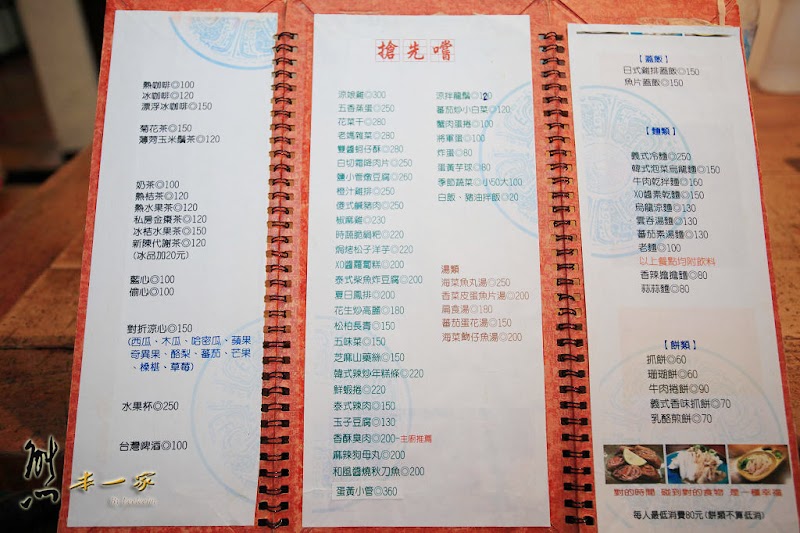 熱咖啡◎100
冰咖啡◎120
漂浮冰咖啡◎150
菊花茶◎150
薄荷玉米鬚茶◎120
奶茶◎100
熱桔茶◎120
熱水果茶◎120
私房金棗茶◎120
冰桔水果茶◎150
新陳代謝茶◎120
(冰品加20元)
藍心◎100
偷心◎100
對折涼心◎150
(西瓜、木瓜、哈密瓜、蘋果
奇異果、酪梨、蕃茄、芒果
、檸檬、草莓)
水果杯◎250
台灣啤酒◎100
搶先嚐
涼娘雞◎300
五香蒸蛋◎250
花菜干◎280
老媽雜菜◎280
雙醬蝦仔酥◎280
白切霜降肉片◎260
鹽小管燉豆腐◎260
橙汁雞排◎250
傻式鹹豬肉◎250
椒麻雞◎230
時蔬脆鍋粑◎220
焗烤松子洋芋◎220
XO醬蘿蔔糕◎200
泰式柴魚炸豆腐◎200
夏日鳳排◎200
花生炒高麗◎180
松柏長青◎150
五味菜◎150
芝麻山藥絲◎150
韓式辣炒年糕條◎220
鮮蝦捲◎220
泰式辣肉◎150
玉子豆腐◎130
香酥臭肉◎200-主廚推薦
麻辣狗母丸◎200
和風醬燒秋刀魚◎200
蛋黃小管◎360
涼拌龍鬚◎120
蕃茄炒小白菜◎120
蟹肉蛋捲◎100
將軍蛋◎100
炸蛋◎80
蛋黃芋球◎80
季節蔬菜◎小50大100
白飯、豬油拌飯◎20
湯類
海菜魚丸湯◎250
香菜皮蛋魚片湯◎200
扁食湯◎180
蕃茄蛋花湯◎150
海菜魩仔魚湯◎200
【蓋飯】
日式雞排蓋飯◎150
魚片蓋飯◎150
【麵類】
義式冷麵◎250
韓式泡菜烏龍麵◎150
牛肉乾拌麵◎160
XO醬素乾麵◎150
烏龍涼麵◎130
雲吞湯麵◎130
蕃茄素湯麵◎130
老麵◎100
以上餐點均附飲料
香辣擔擔麵◎80
蒜蒜麵◎80
【餅類】
抓餅◎60
珊瑚餅◎60
牛肉捲餅◎90
義式香味抓餅◎70
乳酪煎餅◎70
對的時間 碰到對的食物 是一種幸福
每人最低消費80元(餅類不算低消)
熊本一家